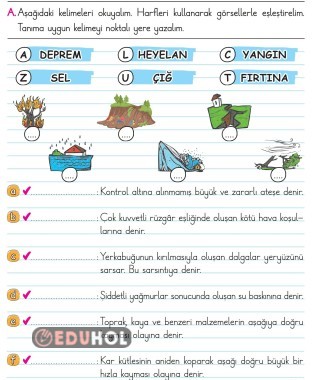 A. Aşağıdaki kelimeleri okuyalım. Harfleri kullanarak görsellerle eşleştirelim.
Tanıma uygun kelimeyi noktalı yere yazalım.
A DEPREM L HEYELAN C YANGIN
Z SEL U ÇIĞ T FIRTINA
a ✔ ........................ : Kontrol altına alınmamış büyük ve zararlı ateşe denir.
b ✔ ........................ : Çok kuvvetli rüzgâr eşliğinde oluşan kötü hava koşul-
larına denir.
c ✔ ........................ : Yerkabuğunun kırılmasıyla oluşan dalgalar yeryüzünü
sarsar. Bu sarsıntıya denir.
d ✔ ........................ : Şiddetli yağmurlar sonucunda oluşan su baskınına denir.
e ✔ ........................ : Toprak, kaya ve benzeri malzemelerin aşağıya doğru
olayına denir.
EDUHOL
f ✔ ........................ : Kar kütlesinin aniden koparak aşağı doğru büyük bir
hızla kayması olayına denir.